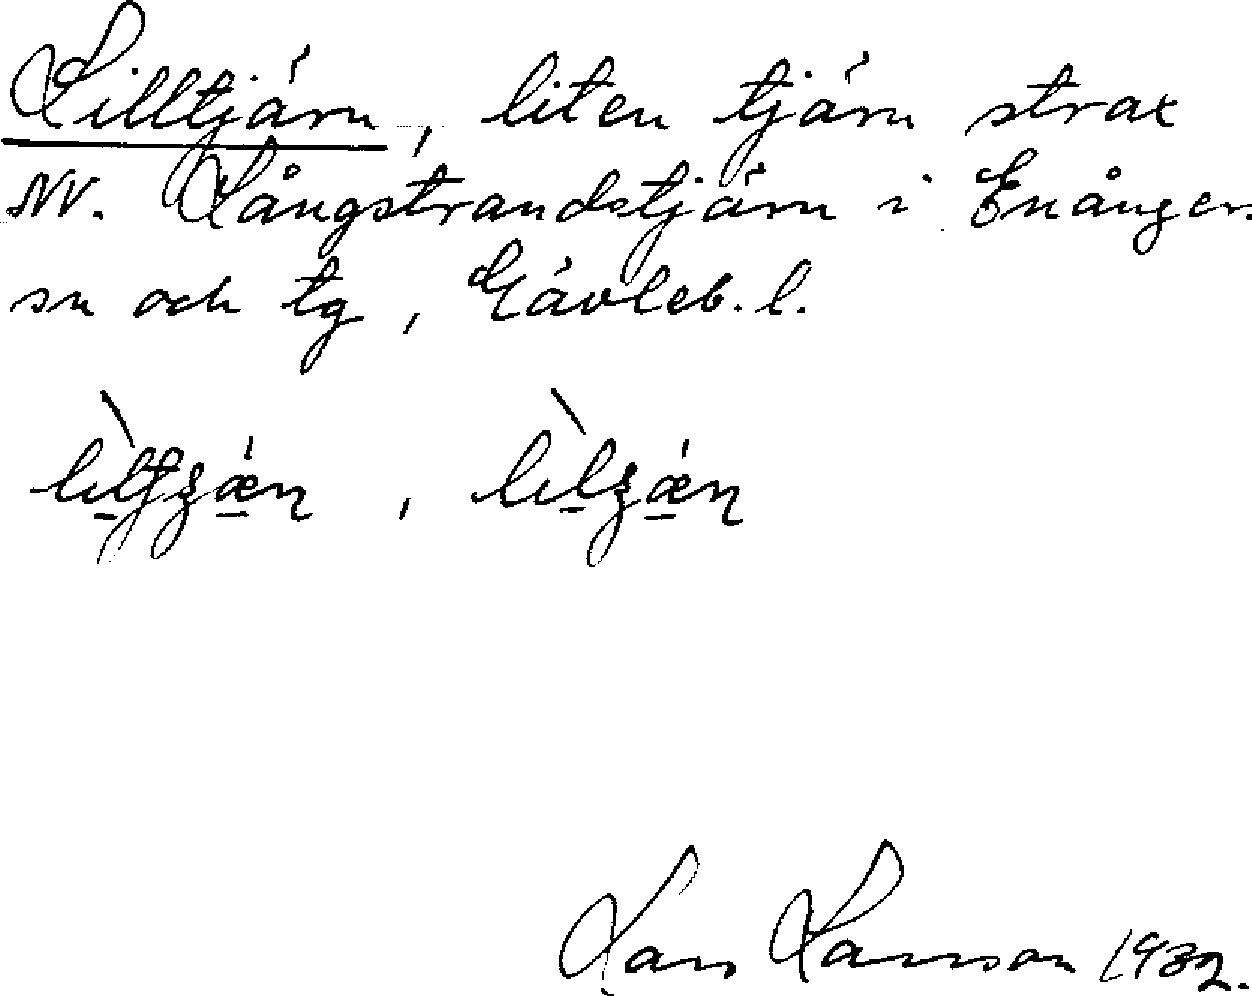 Lilltjärn, liten tjärn strax
NV. Långstrandstjärn i Enånger.
sn och tg, Gävleb. l.
Lars Larsson 1932.